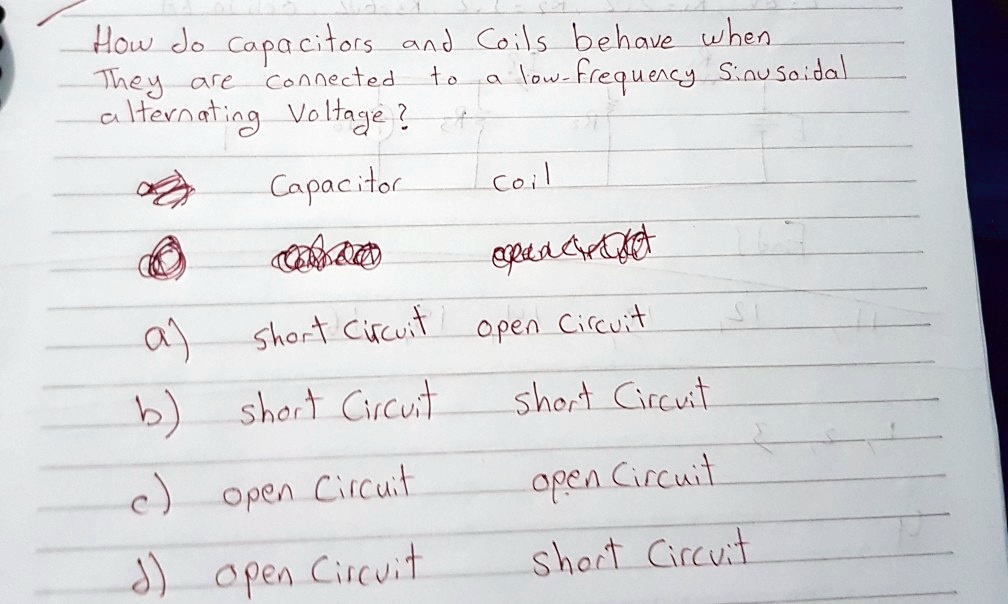 How do capacitors and Coils behave when
They are connected to a low-frequency Sinusoidal
alternating Voltage?
Capacitor coil
a) short Circuit open Circuit
b) short Circuit short Circuit
c) open Circuit open Circuit
d) open Circuit short Circuit